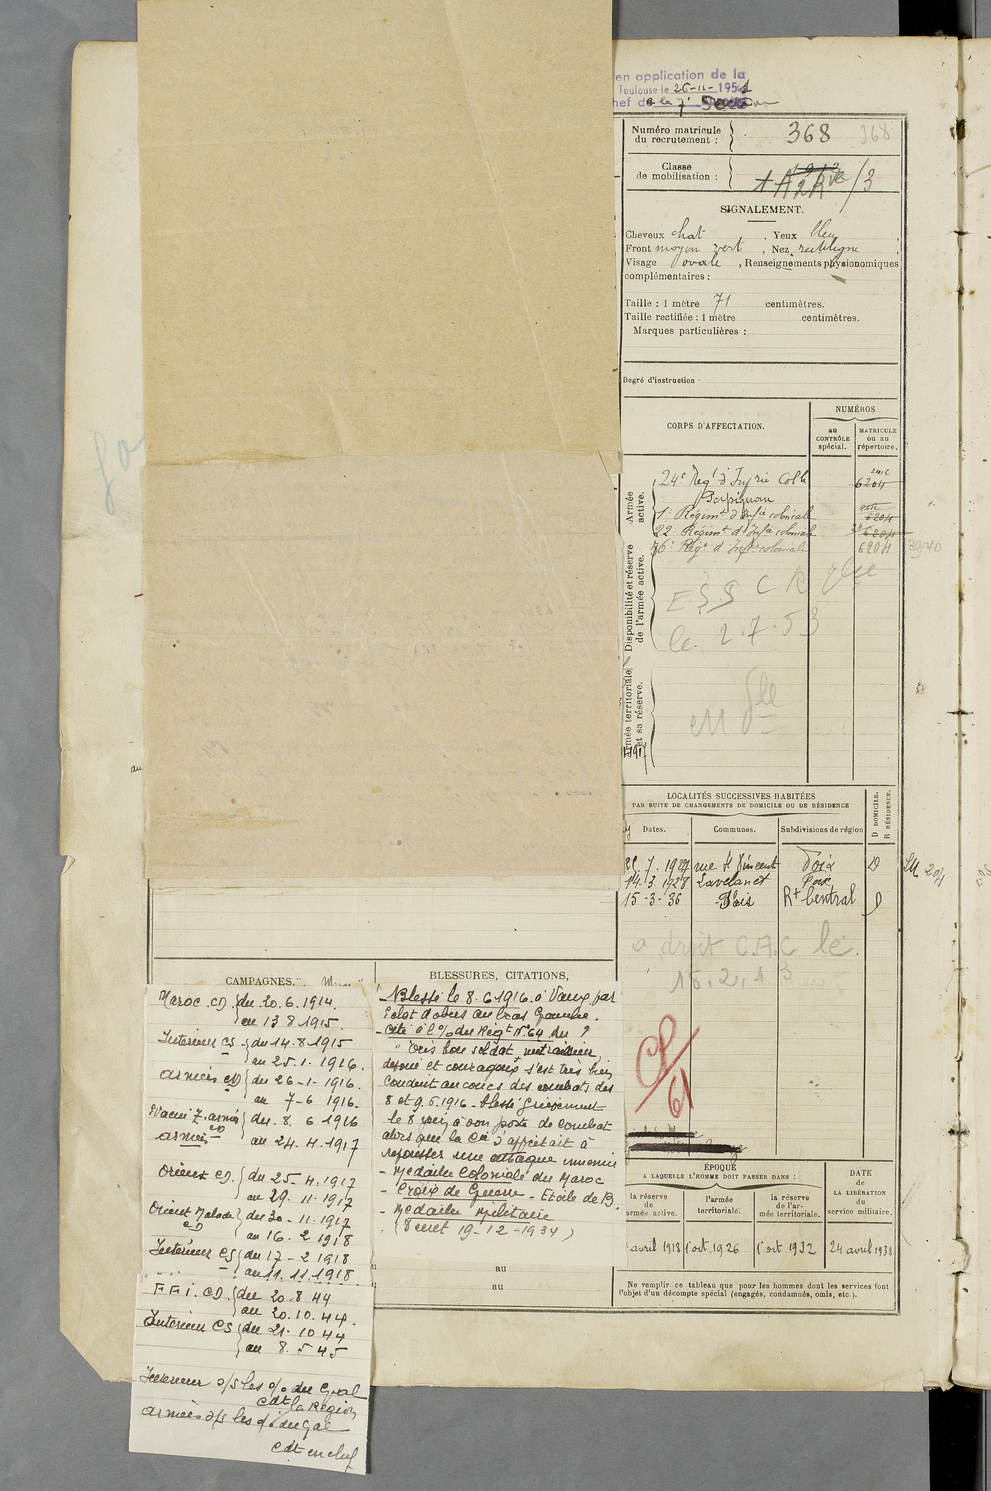 en application de la
Toulouse le 26-11-195
Numéro matricule
du recrutement :
368
368
Classe
de mobilisation :
SIGNALEMENT.
Cheveux chat , Yeux bleu ,
Front moyen vert , Nez rectiligne
Visage ovale , Renseignements physionomiques
complémentaires :
Taille : 1 mètre 71 centimètres.
Taille rectifiée : 1 mètre centimètres.
Marques particulières :
Degré d'instruction
CORPS D'AFFECTATION.
NUMÉROS
au
CONTRÔLE
spécial.
MATRICULE
ou au
répertoire.
Armée
active.
24e Regt d'Infrie Colle
Perpignan
6204
1 Régimt d'Infie coloniale
6204
22 Régimt d'Infie coloniale
6204
Disponibilité et réserve
de l'armée active.
Regt d'Infie coloniale
6204
39-40
le 2.7.53
Armée territoriale
et sa réserve.
LOCALITÉS SUCCESSIVES HABITÉES
PAR SUITE DE CHANGEMENTS DE DOMICILE OU DE RÉSIDENCE
D DOMICILE.
R RÉSIDENCE.
Dates.
Communes.
Subdivisions de région
7.1927 rue St Vincent Foix D
14.3.1928 Lavelanet Foix
15-3-36 Paris Rt Central D
a droit C.A.C le
15.2.43
61
ÉPOQUE
A LAQUELLE L'HOMME DOIT PASSER DANS :
DATE
DE LA LIBÉRATION
du
service militaire.
la réserve
de
armée active.
l'armée
territoriale.
la réserve
de l'ar-
mée territoriale.
avril 1918
1 oct. 1926
1 oct 1932
24 avril 1938
Ne remplir ce tableau que pour les hommes dont les services font
l'objet d'un décompte spécial (engagés, condamnés, omis, etc.).
CAMPAGNES.
Maroc CD. du 20.6.1914.
au 13 8 1915.
Intérieur CS du 14.8.1915
au 25.1.1916.
Armées CD du 26-1-1916.
au 7-6 1916.
Evacué Z. armées CD du 8. 6 1916
armées au 24.4.1917
Orient CD. du 25.4.1917
au 29.11.1917
Orient Malade CD du 30-11.1917
au 16.2 1918
Intérieur CS du 17-2 1918
au 11.11.1918.
F F I. CD. du 20.8.44
au 20.10.44.
Intérieur CS du 21.10 44
au 8.5 45
Intérieur s/s les o/ du Gral
Cdt la Région
Armées s/s les o/ du Gal
Cdt en chef
BLESSURES, CITATIONS,
- Blessé le 8.6 1916. à Vaux par
Eclat d'obus au bras Gauche.
- Cité à l'o/ du Régt No 64 du ?
" Très bon soldat, mitrailleur,
dévoué et courageux s'est très bien
conduit au cours des combats des
8 et 9.6.1916 - blessé grièvement
le 8 juin à son poste de combat
alors que la Cie s'apprêtait à
repousser une attaque ennemie
- Médaille Coloniale du Maroc
- Croix de Guerre - Etoile de B.
- Médaille Militaire
(Décret 19-12-1934)
au
au